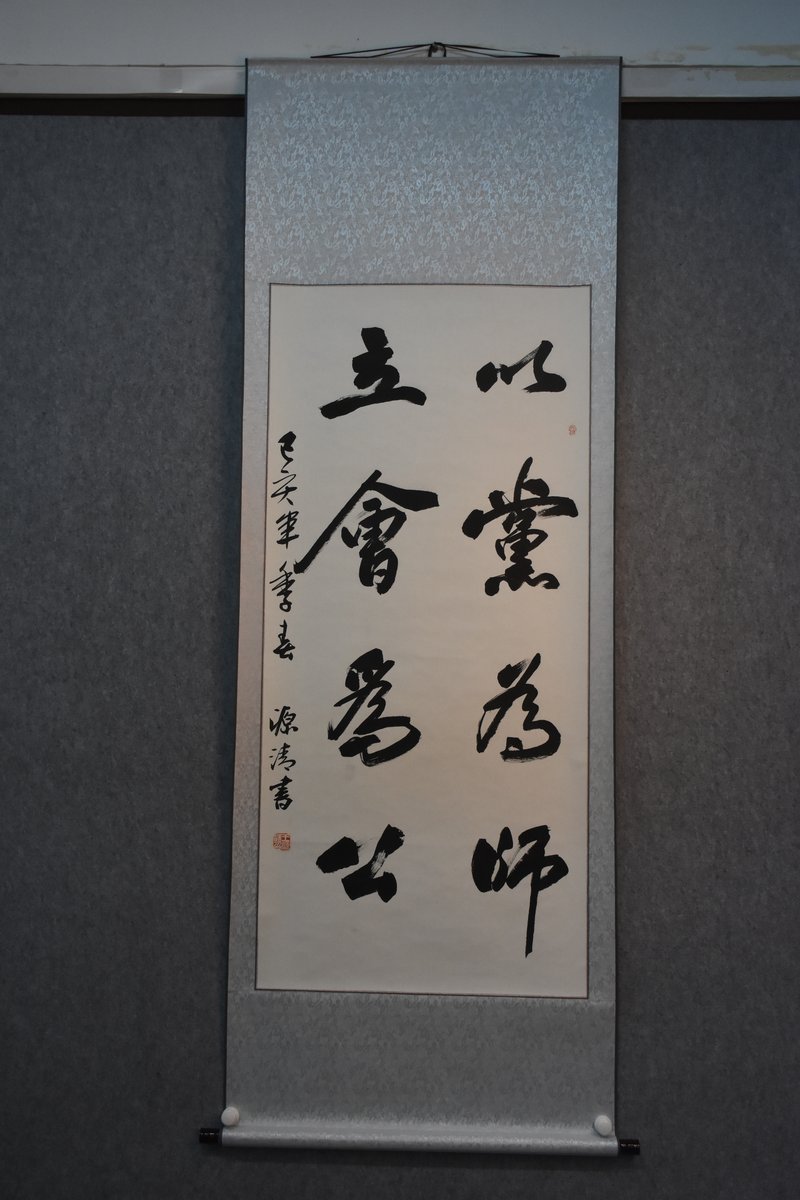 以黨為師
立會爲公
己亥年季春 源清書